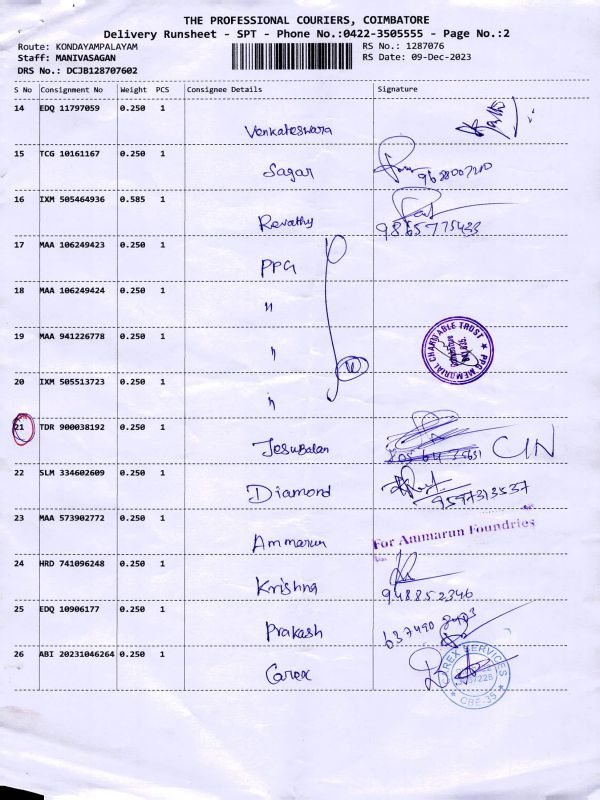 THE PROFESSIONAL COURIERS, COIMBATORE
Delivery Runsheet - SPT - Phone No.:0422-3505555 - Page No.:2
Route: KONDAYAMPALAYAM RS No.: 1287076
Staff: MANIVASAGAN RS Date: 09-Dec-2023
DRS No.: DCJB128707602
S No Consignment No Weight PCS Consignee Details Signature
14 EDQ 11797059 0.250 1
Venkateswara
15 TCG 10161167 0.250 1
Sagar
16 IXM 505464936 0.585 1
Revathy 9865775433
17 MAA 106249423 0.250 1
PPG
18 MAA 106249424 0.250 1
"
19 MAA 941226778 0.250 1
"
PPG MEMORIAL CHARITABLE TRUST
20 IXM 505513723 0.250 1
"
21 TDR 900038192 0.250 1
Jesubalan
22 SLM 334602609 0.250 1
Diamond 9597313537
23 MAA 573902772 0.250 1
Ammarun
For Ammarun Foundries
24 HRD 741096248 0.250 1
Krishna 948852346
25 EDQ 10906177 0.250 1
Prakash
26 ABI 20231046264 0.250 1
Carex
CAREX SERVICES
CBE-35